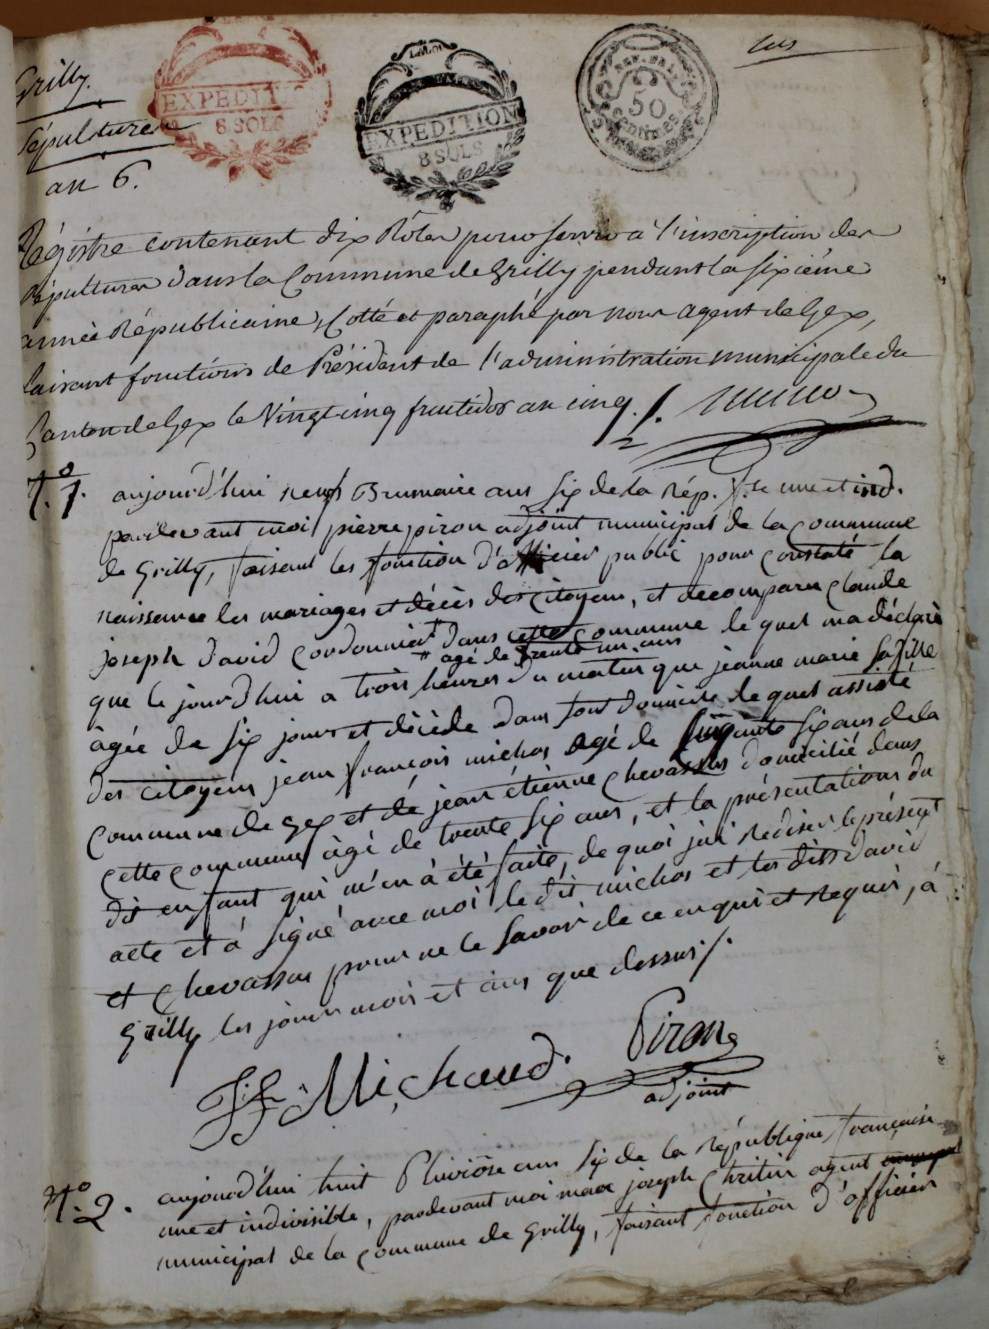 Grilly.
Sépultures
an 6.
EXPEDITION
8 SOLS
LA LOI
EXPEDITION
8 SOLS
REP. FRA.
50
centimes
Régistre contenant dix Rôles pour servir à l'inscription des
sépultures dans la Commune de Grilly pendant la sixième
année Républicaine, Cotté et paraphé par nous agent de Gex,
faisant fonctions de Président de l'administration municipale du
Canton de Gex le Vingt cinq fructidor an cinq ./.
N.º 1. aujourd'hui neuf Brumaire ans six de la Rép. f.se une et ind.
pardevant moi pierre piron adjoint municipal de la Commune
de Grilly, faisant les fonction d'officier public pour constaté la
naissance les mariages et décès des citoyens, et decomparu Claude
joseph david Cordonnier # dans cette Commune le quel ma déclaré
# agé de trente un ans
que le jourd'hui a trois heures du matin que jeanne marie sa fille
âgée de six jours et décédé dans son domicile le quel assisté
des citoyens jean françois michos agé de cinquante six ans de la
Commune de gex et de jean étienne Chevassus domicilié dans
cette commune âgé de trente six ans, et la présentations du
dit enfant qui m'en à été faite, de quoi jai rediser le présent
acte et à signé avec moi le dit michos et les dits david
et Chevassus pour ne le savoir de ce enquis et requis, à
Grilly les jours mois et ans que dessus ./.
J. f. Michaud. Piron
adjoint
N.º 2. aujourd'hui huit Pluviôse ans six de la République française
une et indivisible, pardevant moi marc joseph Chritin agent
municipal de la Commune de Grilly, faisant fonction d'officier